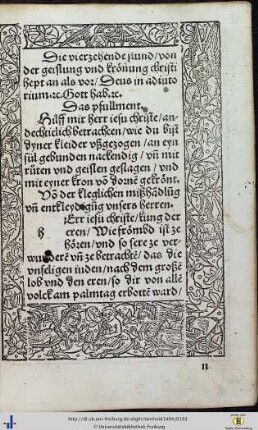 Die vierzehende stund/von
der geislung vnd krönung christi
hept an als vor/Deus in adiuto
rium.⁊c.Gott hab.⁊c.
Das pfulment.
Hilff mir herr iesu christe/an-
dechticlich betrachten/wie du bist
dyner kleider vßgezogen/an eyn
sül gebunden nackendig/vn̄ mit
rüten vnd geislen geslagen/vnd
mit eyner kron võ dornē gekrönt.
Võ der kleglichen mißhãdlũg
vn̄ entkleydũg vnsers herren.
Err iesu christe/kung der
h eren/Wie frömbd ist ze
hören/vnd so sere ze ver-
wunderē vn̄ ze betrachtē/das die
vnseligen iuden/nach dem großē
lob vnd den eren/so dir von allē
volck am palmtag erbottē ward/
II
© Universitätsbibliothek Freiburg